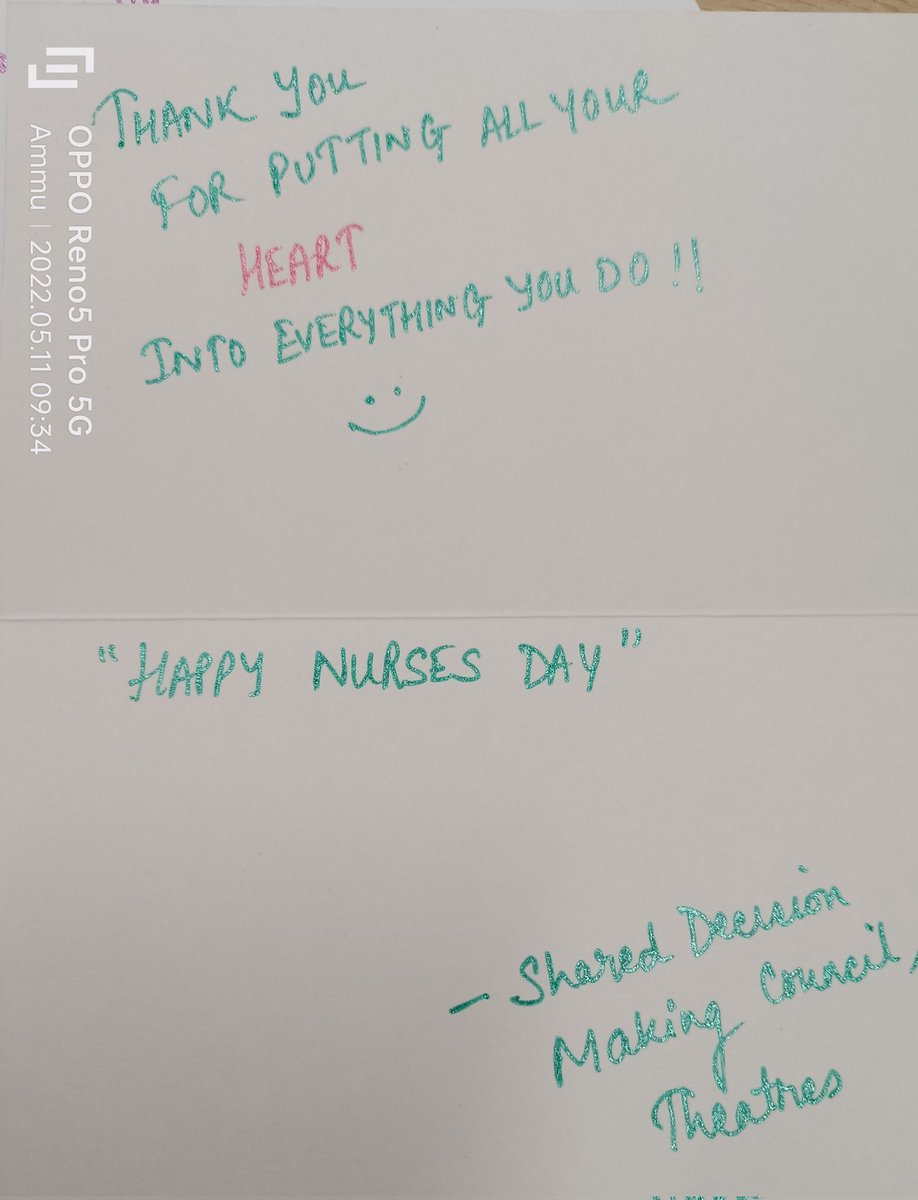 THANK YOU
FOR PUTTING ALL YOUR
HEART
INTO EVERYTHING YOU DO !!
"HAPPY NURSES DAY"
- Shared Decision
Making Council,
Theatres
OPPO Reno5 Pro 5G
Ammu | 2022.05.11 09:34